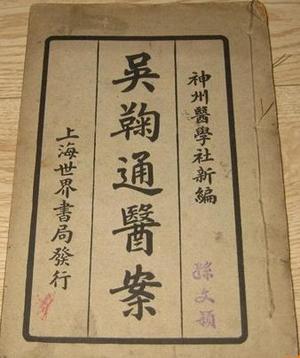 神州醫學社新編
吳鞠通醫案
上海世界書局發行
孫文穎